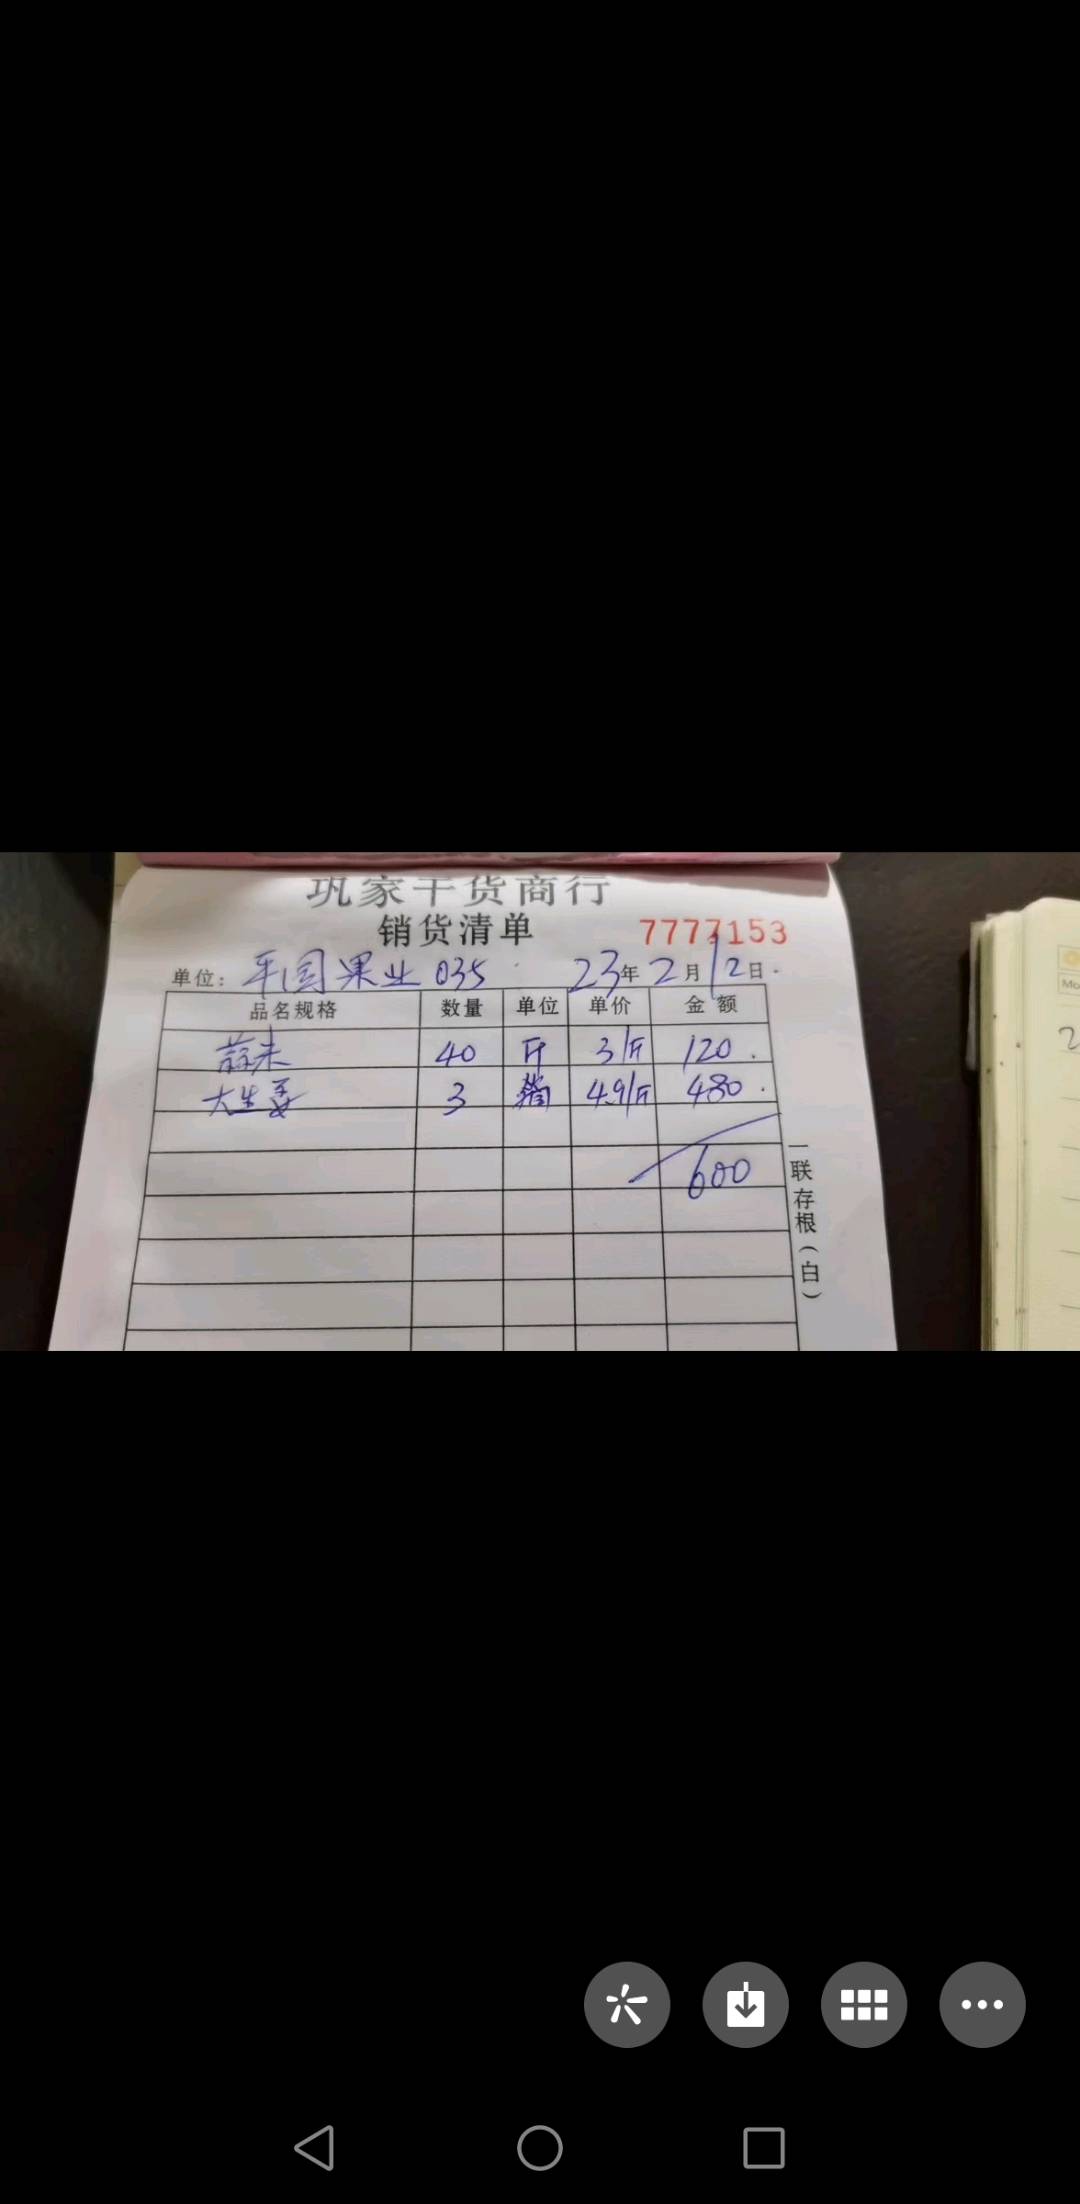 巩家干货商行
销货清单 7777153
单位: 平国果业 035 23年2月12日
品名规格 数量 单位 单价 金额
蒜米 40 斤 3/斤 120
大生姜 3 4.9/斤 480
600
一联存根(白)
Mo
2